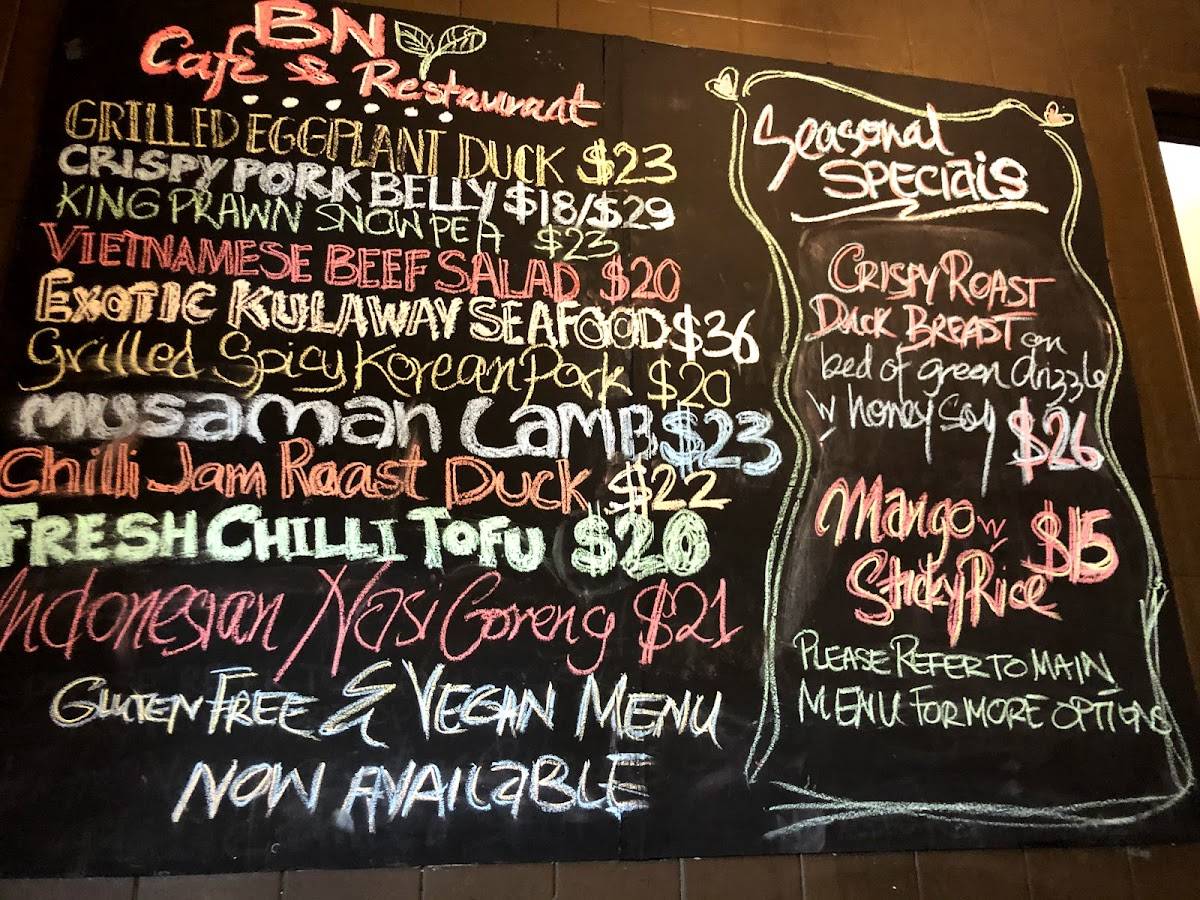 BN
Cafe & Restaurant
GRILLED EGGPLANT DUCK $23
CRISPY PORK BELLY $18/$29
KING PRAWN SNOW PEA $23
VIETNAMESE BEEF SALAD $20
EXOTIC KULAWAY SEAFOOD $36
Grilled Spicy Korean Pork $20
Musaman Lamb $23
Chilli Jam Roast Duck $22
FRESH CHILLI TOFU $20
Indonesian Nasi Goreng $21
GLUTEN FREE & VEGAN MENU
NOW AVAILABLE
Seasonal
SPECIALS
CRISPY ROAST
DUCK BREAST on
bed of green drizzle
w honey soy $26
Mango w $15
Sticky Rice
PLEASE REFER TO MAIN
MENU FOR MORE OPTIONS